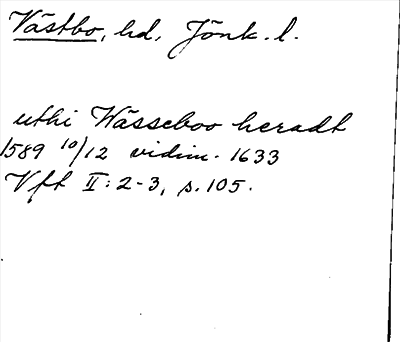 Västbo, hd, Jönk. l.
uthi Wässeboo heradt
1589 10/12 vidim. 1633
Vft II: 2-3, s. 105.